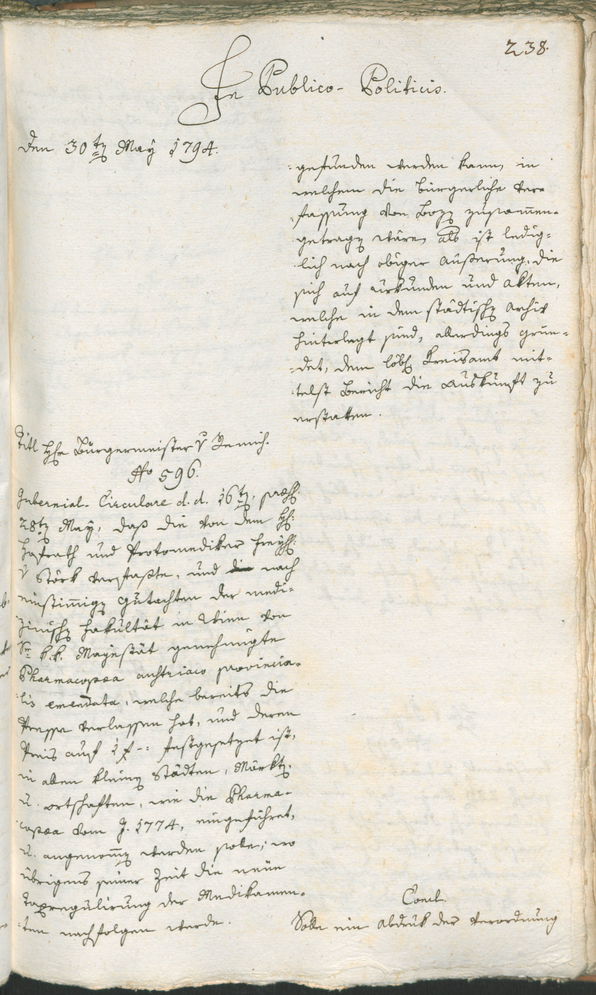 238.
In Publico-Politicis.
Den 30ten May 1794.
gefunden werden kann, in
welchem die bürgerliche Ver-
fassung von Bozen zusammen-
getragen wären, als ist ledig-
lich nach obiger Äußerung, die
sich auf Urkunden und Akten,
welche in dem städtischen Archiv
hinterlegt sind, allerdings grün-
det, dem löbl. Kreisamt mit-
telst Bericht die Auskunft zu
erstatten.
Titl Hr Bürgermeister v
No 596.
Gubernial-Circulare d.d. 16ten, praes.
28ten May, daß die von dem H:
Hofrath und Protomedikus Freyh:
v Störk verfaßte, und nach
einstimmigen Gutachten der medi-
zinischen Fakultät in Wien von
Sr k.k. Majestät genehmigte
Pharmacopaea austriaco provincia-
lis emendata, welche bereits die
Presse verlassen hat, und deren
Preis auf 1 f -: festgesetzet ist,
in allen kleinen Städten, Märkten,
u. Ortschaften, wie die Pharma-
copaea vom J. 1774, eingeführet,
u. angenommen werden solle; wo
übrigens seiner Zeit die neue
Taxregulirung der Medikamen-
ten nachfolgen werde.
Concl.
Solle ein Abdruk der Verordnung